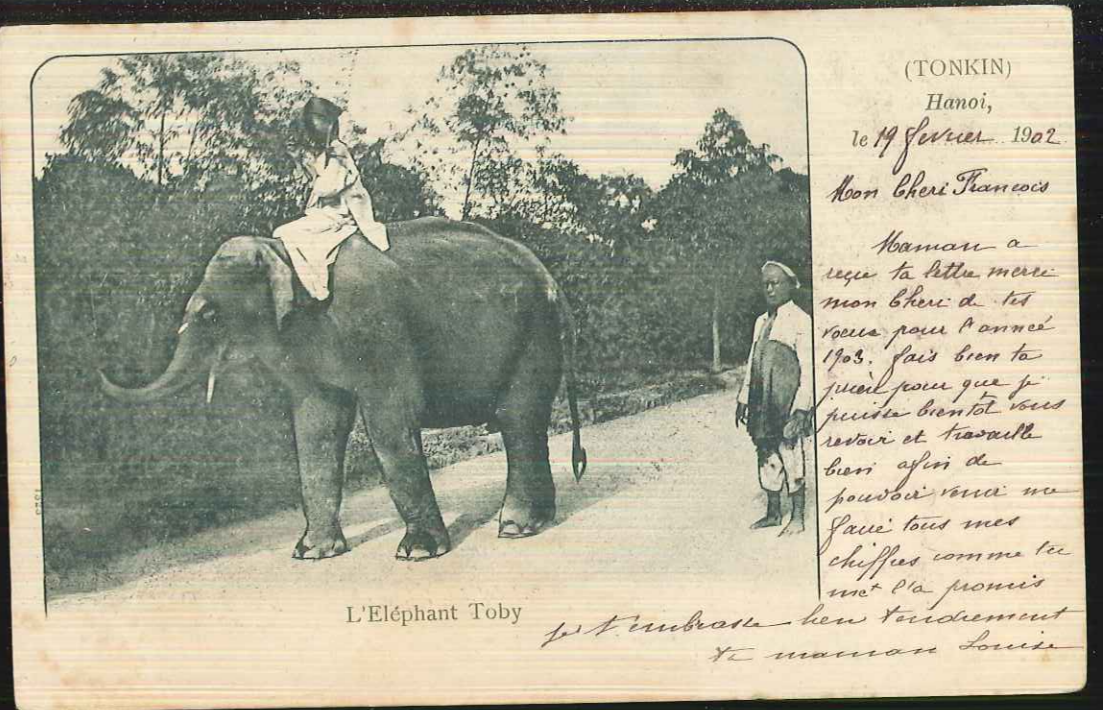 (TONKIN)
Hanoi,
le 19 fevrier 1902
Mon Cheri Francois
Maman a
reçu ta lettre merci
mon Cheri de tes
voeux pour l'anneé
1903. fais bien ta
prière pour que je
puisse bientot vous
revoir et travaille
bien afin de
pouvoir venir me
faire tous mes
chiffres comme tu
me l'a promis
je t'embrasse bien tendrement
ta maman Louise
L'Eléphant Toby